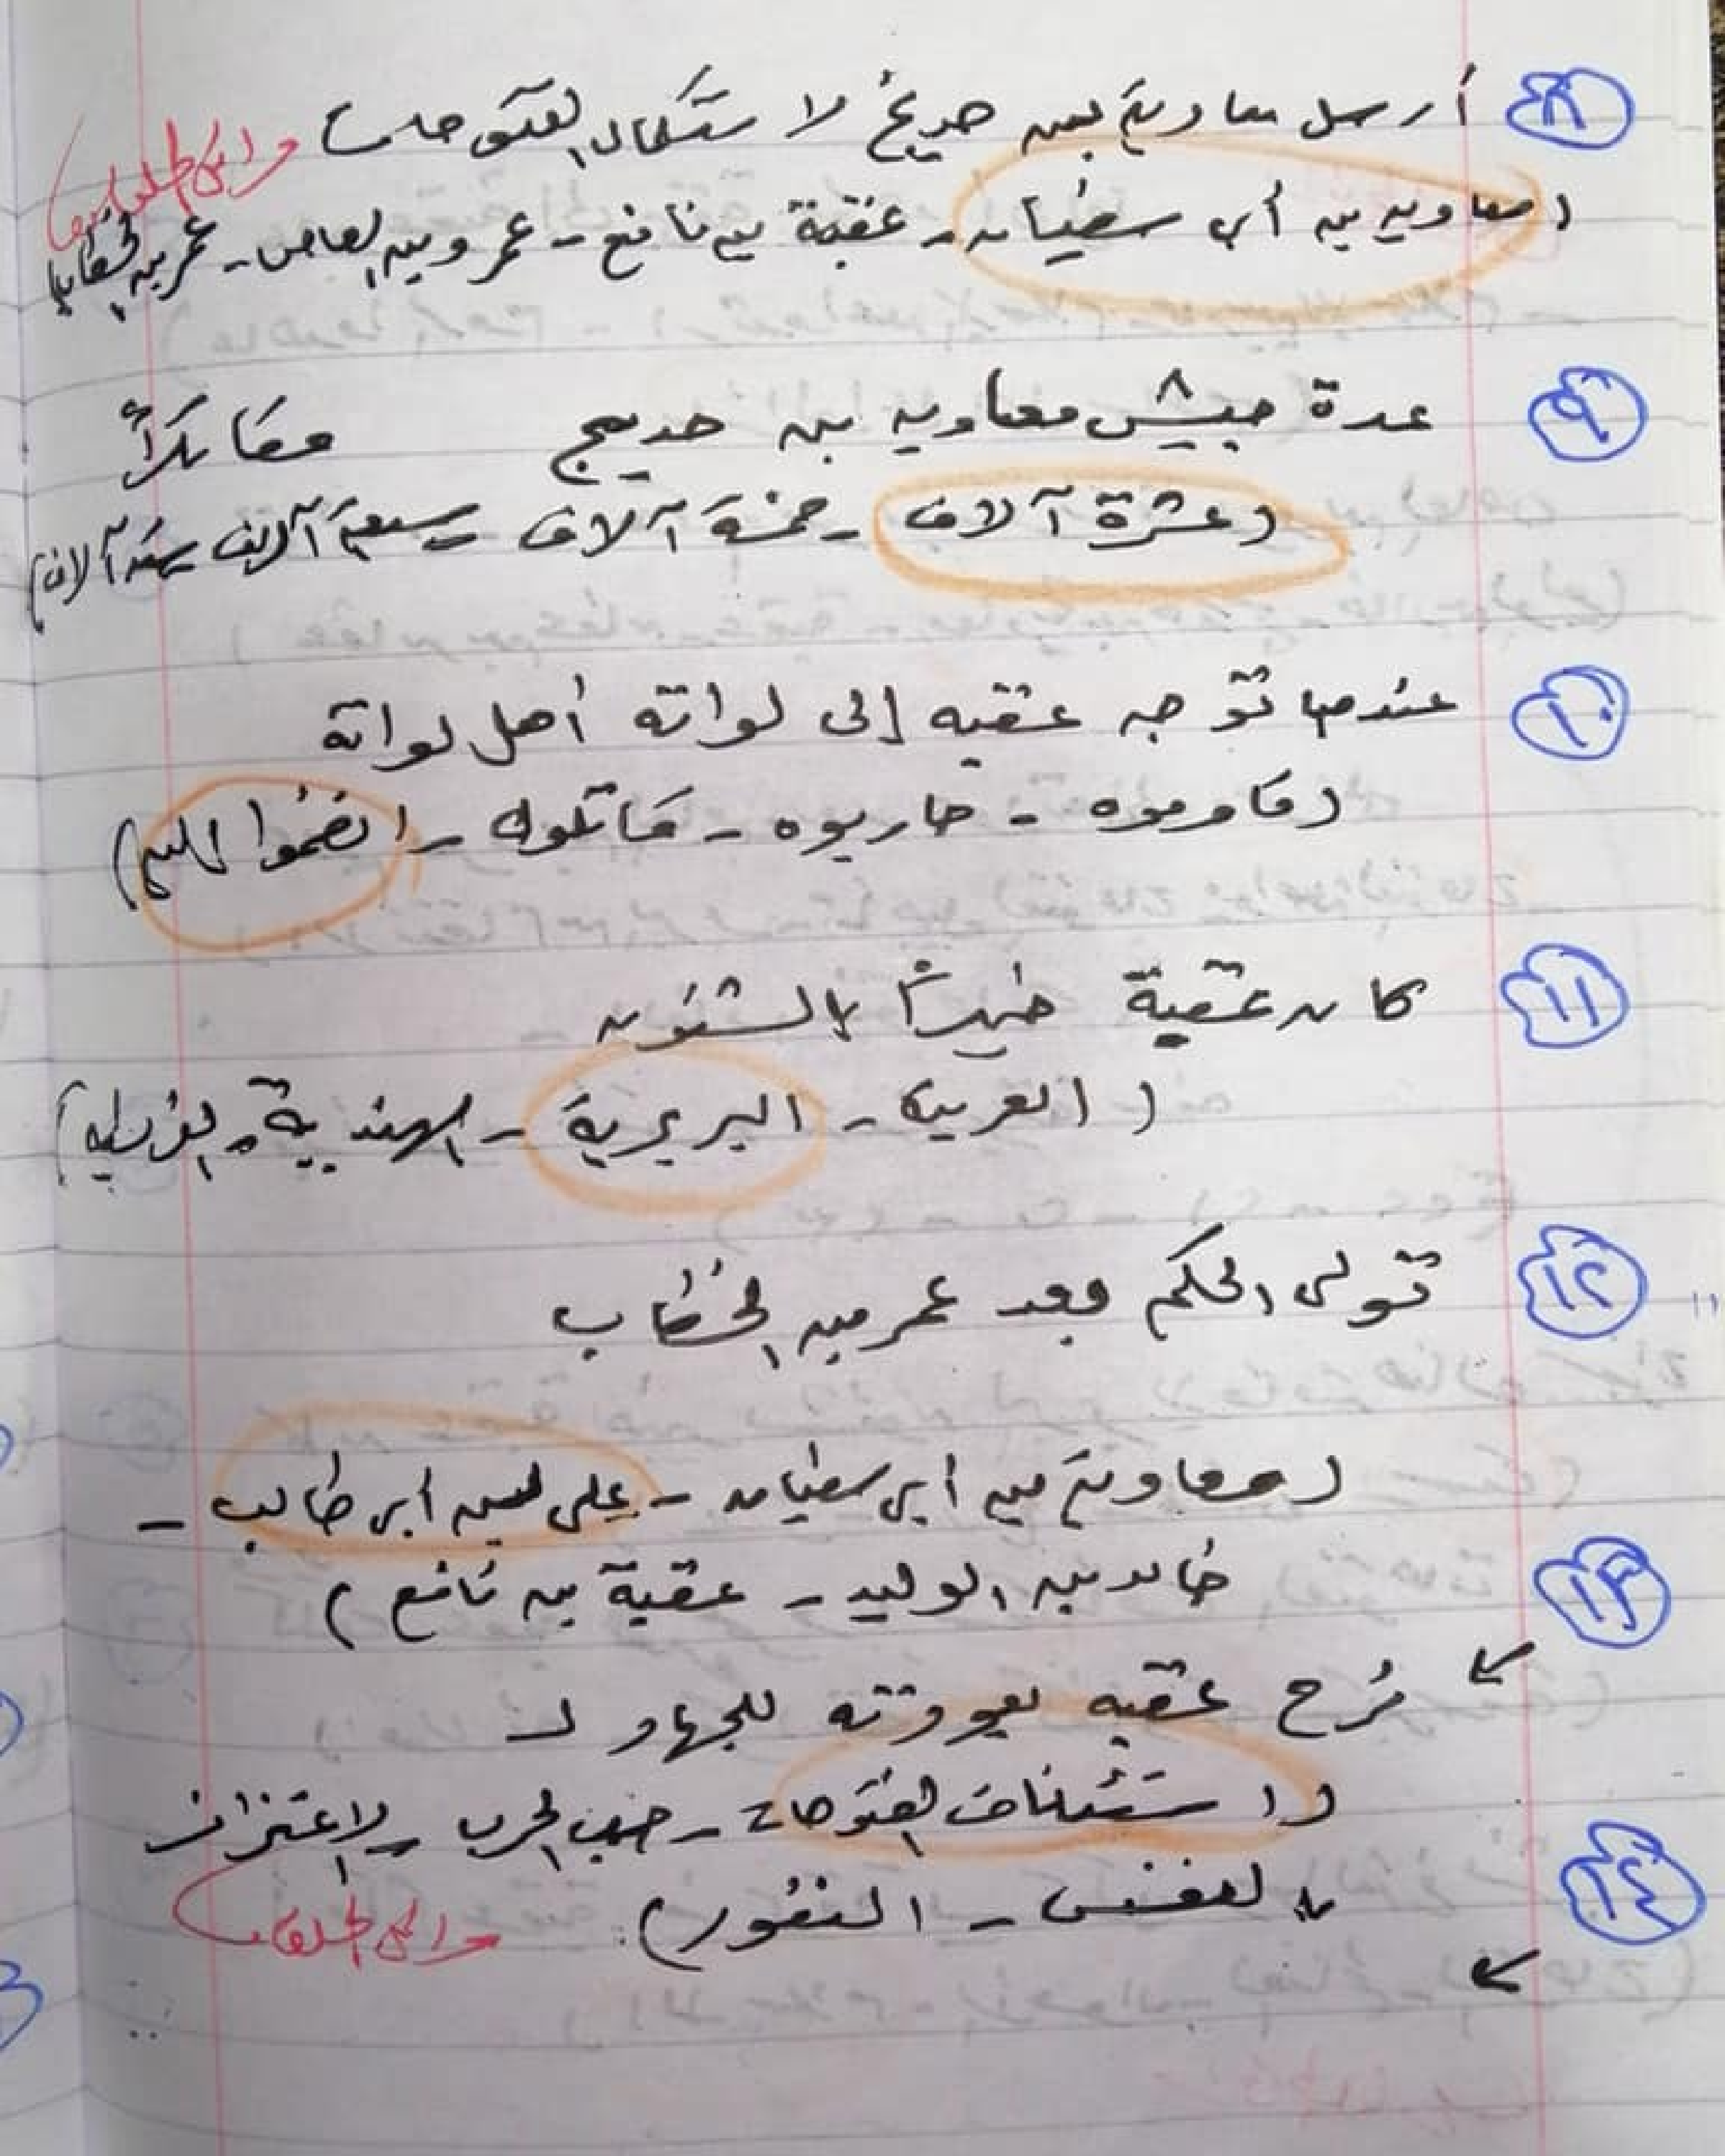 ٨ أرسل معاوية بن حديج لاستكمال الفتوحات
(معاويه بن أبي سفيان - عقبة بن نافع - عمرو بن العاص - عمر بن الخطاب)
٩ عدة جيش معاويه بن حديج مقاتلاً
(عشرة آلاف - خمسة آلاف - سبعة آلاف - ستة آلاف)
١٠ عندما توجه عقبه إلى لواته أهل لواتة
(قاوموه - حاربوه - قاتلوه - انضموا إليه)
١١ كان عقبة خبيراً بالشئون
(العربية - البربرية - الهندية -
١٢ تولى الحكم بعد عمر بن الخطاب
(معاوية بن أبي سفيان - علي بن أبي طالب -
خالد بن الوليد - عقبة بن نافع)
١٣
فرح عقبه بعودته للجهاد لـ
(استئناف الفتوحات - حب الحرب - الاعتزاز
بالنفس - النفور)
١٤